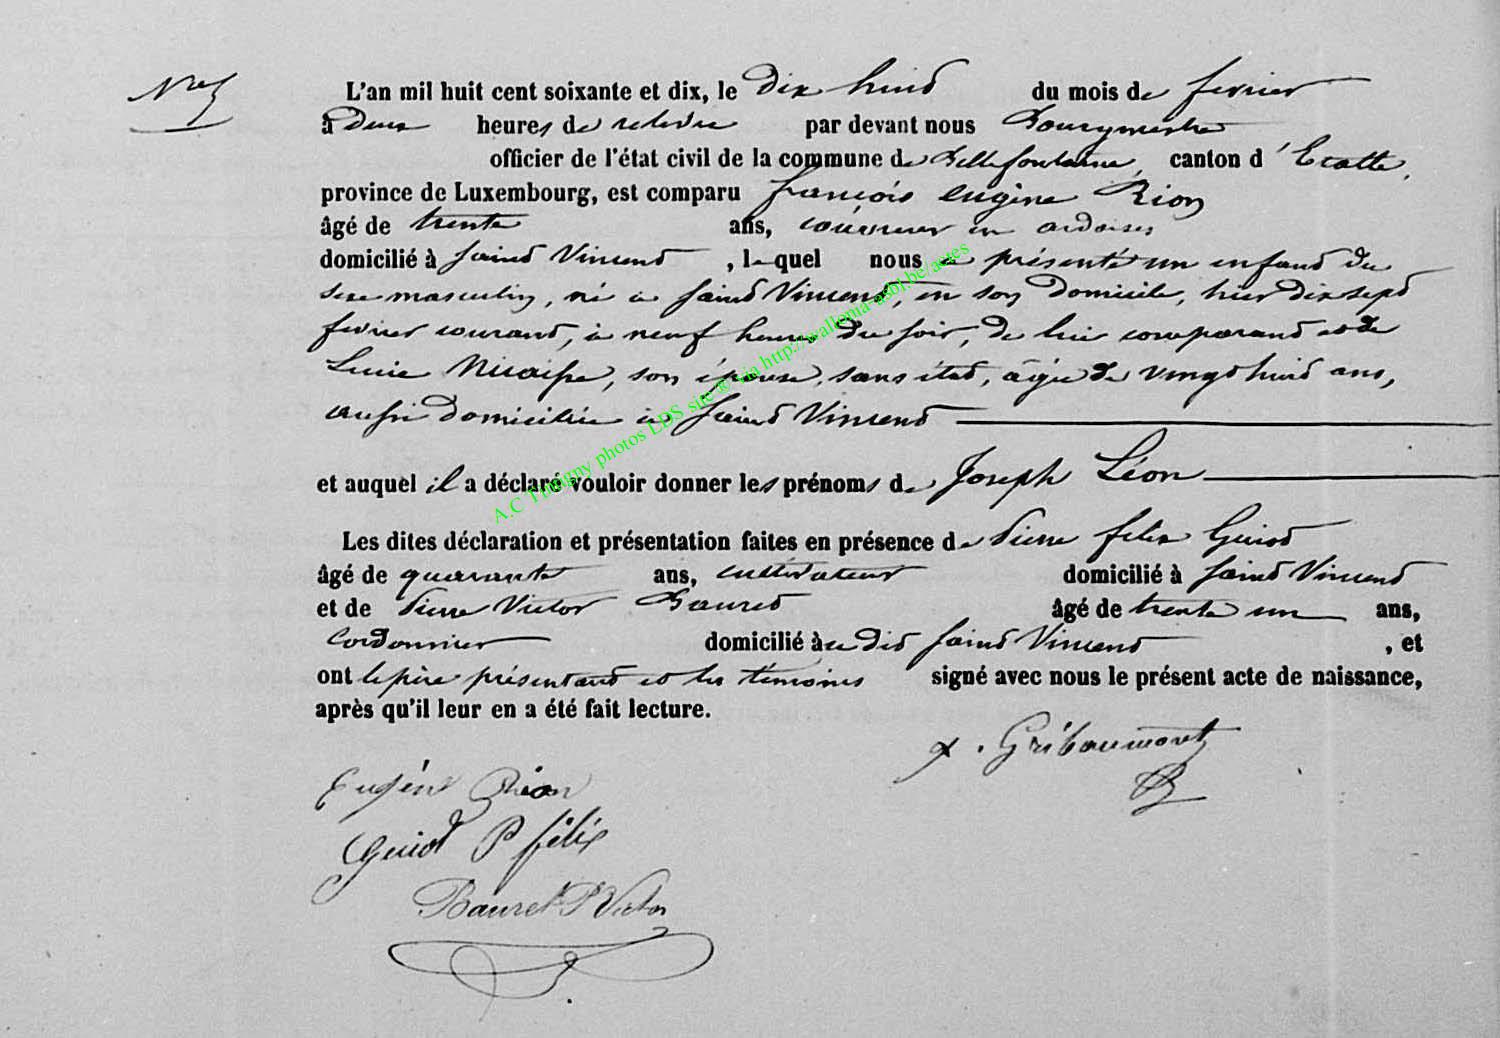 N° 5
L'an mil huit cent soixante et dix, le dix huit du mois de fevrier
à deux heures de relevée par devant nous Bourgmestre
officier de l'état civil de la commune de Bellefontaine, canton d'Etalle,
province de Luxembourg, est comparu françois eugène Rion
âgé de trente ans, couvreur en ardoises
domicilié à Saint Vincent, lequel nous a présenté un enfant du
sexe masculin, né à Saint Vincent, en son domicile, hier dix sept
fevrier courant, à neuf heures du soir, de lui comparant et de
Lucie Nicaise, son épouse, sans état, âgée de vingt huit ans,
aussi domiciliée à Saint Vincent
et auquel il a déclaré vouloir donner les prénoms de Joseph Léon
Les dites déclaration et présentation faites en présence de Pierre felix Guiot
âgé de quarante ans, cultivateur domicilié à Saint Vincent
et de Pierre Victor Bauret âgé de trente un ans,
cordonnier domicilié au dit Saint Vincent, et
ont le père présentant et les témoins signé avec nous le présent acte de naissance,
après qu'il leur en a été fait lecture.
Gribaumont
Eugène Rion
Guiot P félix
Bauret P Victor
A.C Tintigny photos LDS site © via http://wallonia-asbl.be/actes